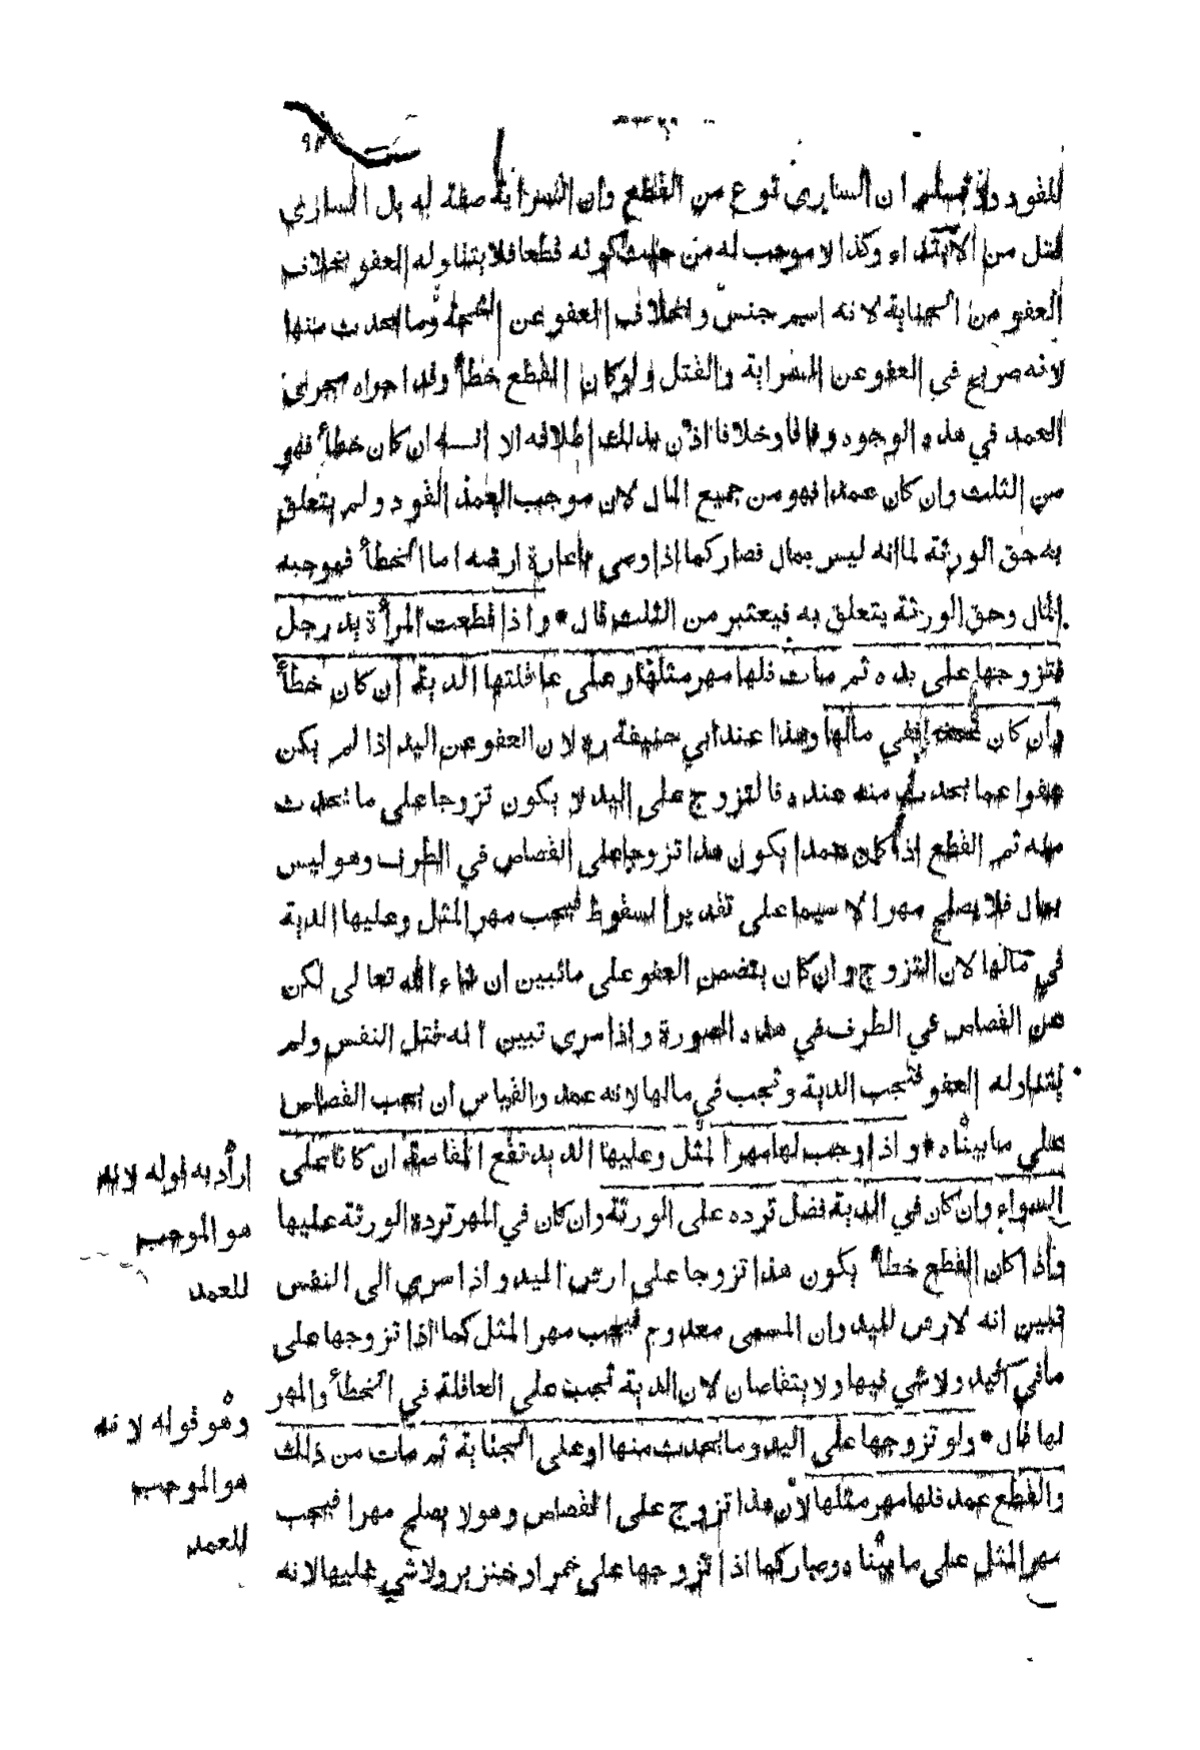 للقود ولا نسلم ان الساري نوع من القطع وان السراية صفة له بل الساري
قتل من الابتداء وكذا لا موجب له من حيث كونه قطعا فلا يتناوله العفو بخلاف
العفو من الجناية لانه اسم جنس وبخلاف العفو عن الشجة وما يحدث منها
لانه صريح في العفو عن السراية والقتل ولو كان القطع خطأ وقد اجراه مجرى
العمد في هذه الوجوه وفاقا وخلافا اذن بذلك اطلاقه الا انه ان كان خطأ فهو
من الثلث وان كان عمدا فهو من جميع المال لان موجب العمد القود ولم يتعلق
به حق الورثة لما انه ليس بمال فصار كما اذا اوصى باعارة ارضه اما الخطأ فموجبه
المال وحق الورثة يتعلق به فيعتبر من الثلث قال * واذا قطعت المرأة يد رجل
فتزوجها على يده ثم مات فلها مهر مثلها وعلى عاقلتها الدية ان كان خطأ
وان كان عمدا ففي مالها وهذا عند ابي حنيفة ره لان العفو عن اليد اذا لم يكن
عفوا عما يحدث منه عنده فالتزوج على اليد لا يكون تزوجا على ما تحدث
منه ثم القطع اذا كان عمدا يكون هذا تزوجا على القصاص في الطرف وهو ليس
بمال فلا يصلح مهرا لا سيما على تقدير السقوط فيجب مهر المثل وعليها الدية
في مالها لان التزوج وان كان يتضمن العفو على ما نبين ان شاء الله تعالى لكن
عن القصاص في الطرف في هذه الصورة واذا سرى تبين انه قتل النفس ولم
يتناوله العفو فتجب الدية وتجب في مالها لانه عمد والقياس ان يجب القصاص
على ما بيناه * واذا وجب لها مهر المثل وعليها الدية تقع المقاصة ان كانا على
السواء وان كان في الدية فضل ترده على الورثة وان كان في المهر ترده الورثة عليها
واذا كان القطع خطأ يكون هذا تزوجا على ارش اليد واذا سرى الى النفس
تبين انه لا ارش لليد وان المسمى معدوم فيجب مهر المثل كما اذا تزوجها على
ما في اليد ولا شي فيها ولا يتقاصان لان الدية تجب على العاقلة في الخطأ والمهر
لها قال * ولو تزوجها على اليد وما يحدث منها او على الجناية ثم مات من ذلك
والقطع عمد فلها مهر مثلها لان هذا تزوج على القصاص وهو لا يصلح مهرا فيجب
مهر المثل على ما بيناه وصار كما اذا تزوجها على خمر او خنزير ولا شي عليها لانه
اراد به قوله لانه
هو الموجب
للعمد
وهو قوله لانه
هو الموجب
للعمد